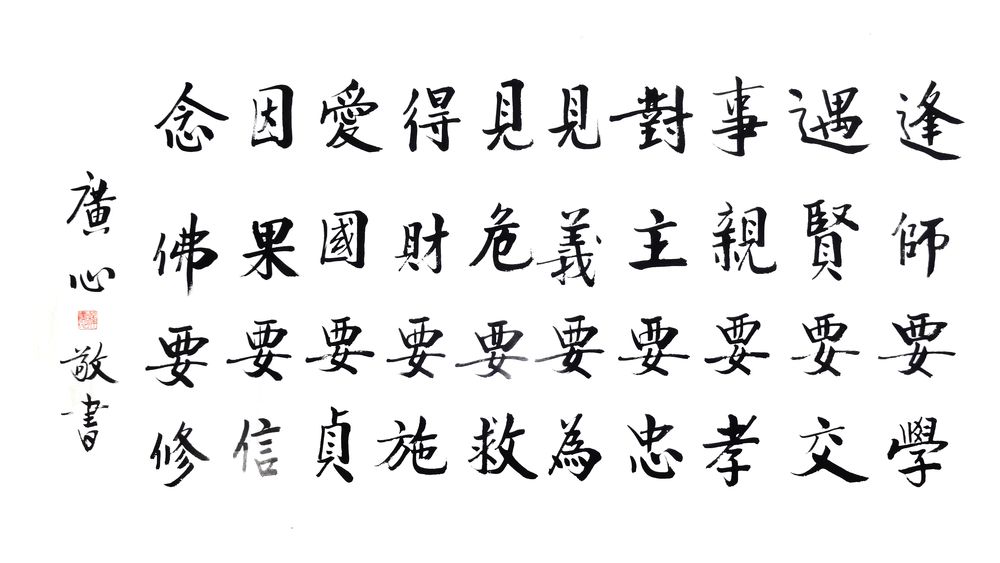 逢師要學
遇賢要交
事親要孝
對主要忠
見義要為
見危要救
得財要施
愛國要貞
因果要信
念佛要修
廣心敬書